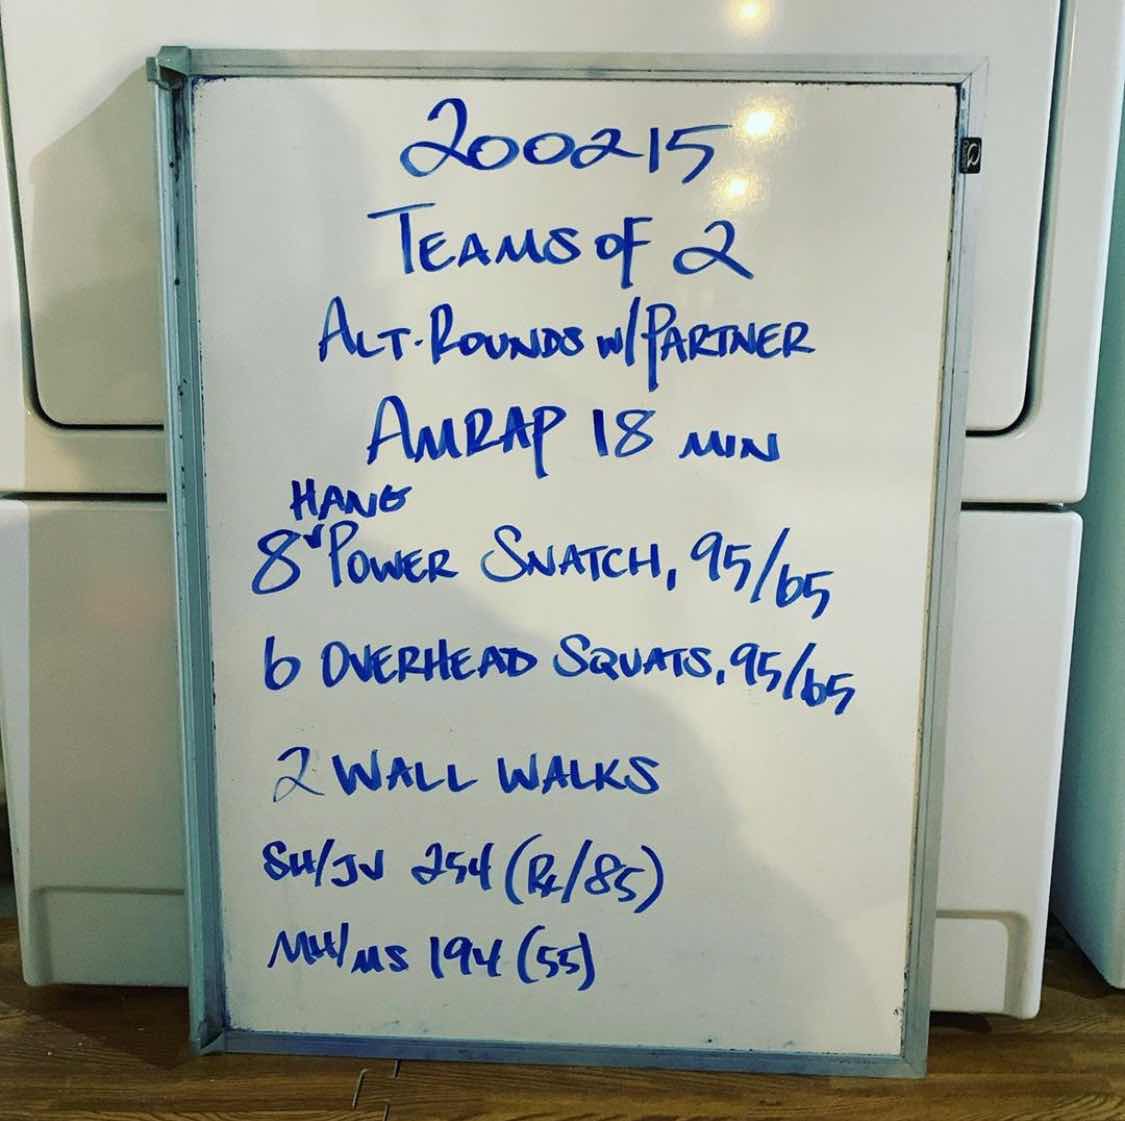 200215
TEAMS OF 2
ALT. ROUNDS W/PARTNER
AMRAP 18 MIN
HANG
8 POWER SNATCH, 95/65
6 OVERHEAD SQUATS, 95/65
2 WALL WALKS
SH/JV 254 (Rx/85)
MH/MS 194 (55)